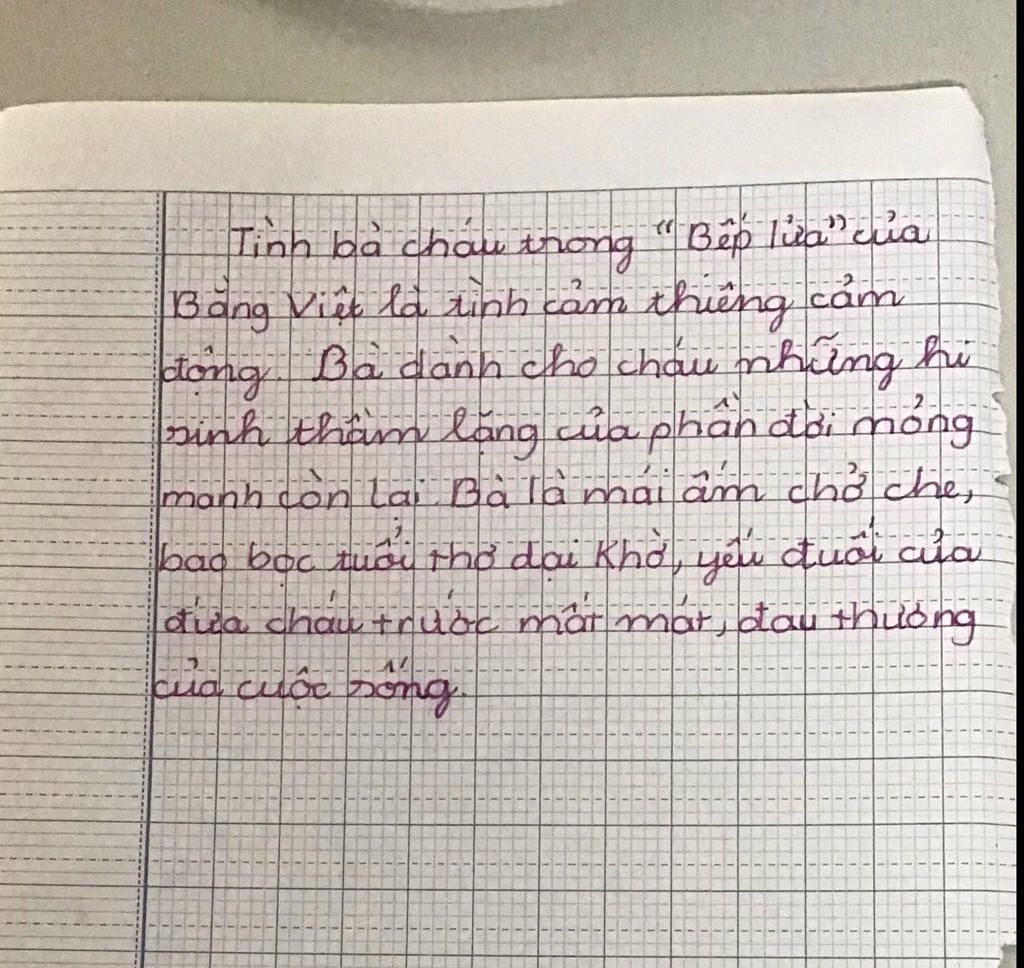 Tình bà cháu trong "Bếp lửa" của
Bằng Việt là tình cảm thiêng cảm
động. Bà dành cho cháu những hi
sinh thầm lặng của phần đời mỏng
manh còn lại. Bà là mái ấm chở che,
bao bọc tuổi thơ dại khờ, yếu đuối của
đứa cháu trước mất mát, đau thương
của cuộc sống.